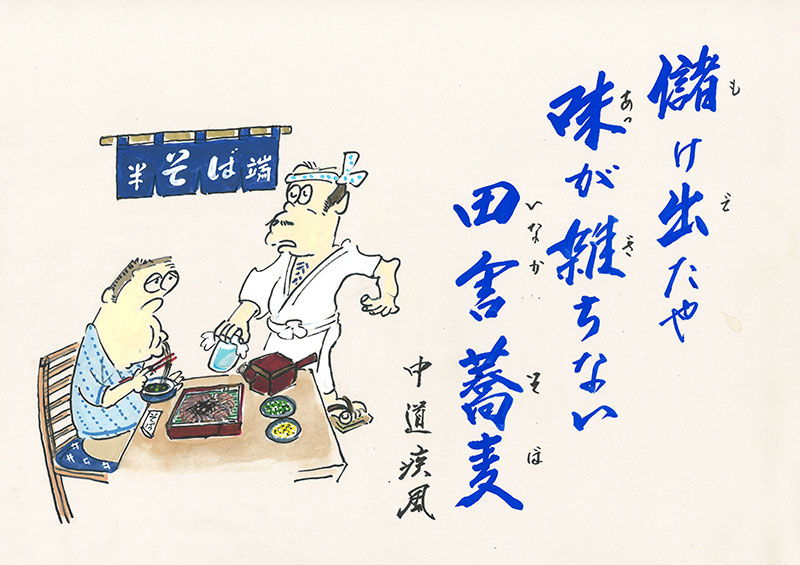 も
儲け出たや
あっ
味が雑ちない
いなか そば
田舎蕎麦
中道疾風
半そば端
そば